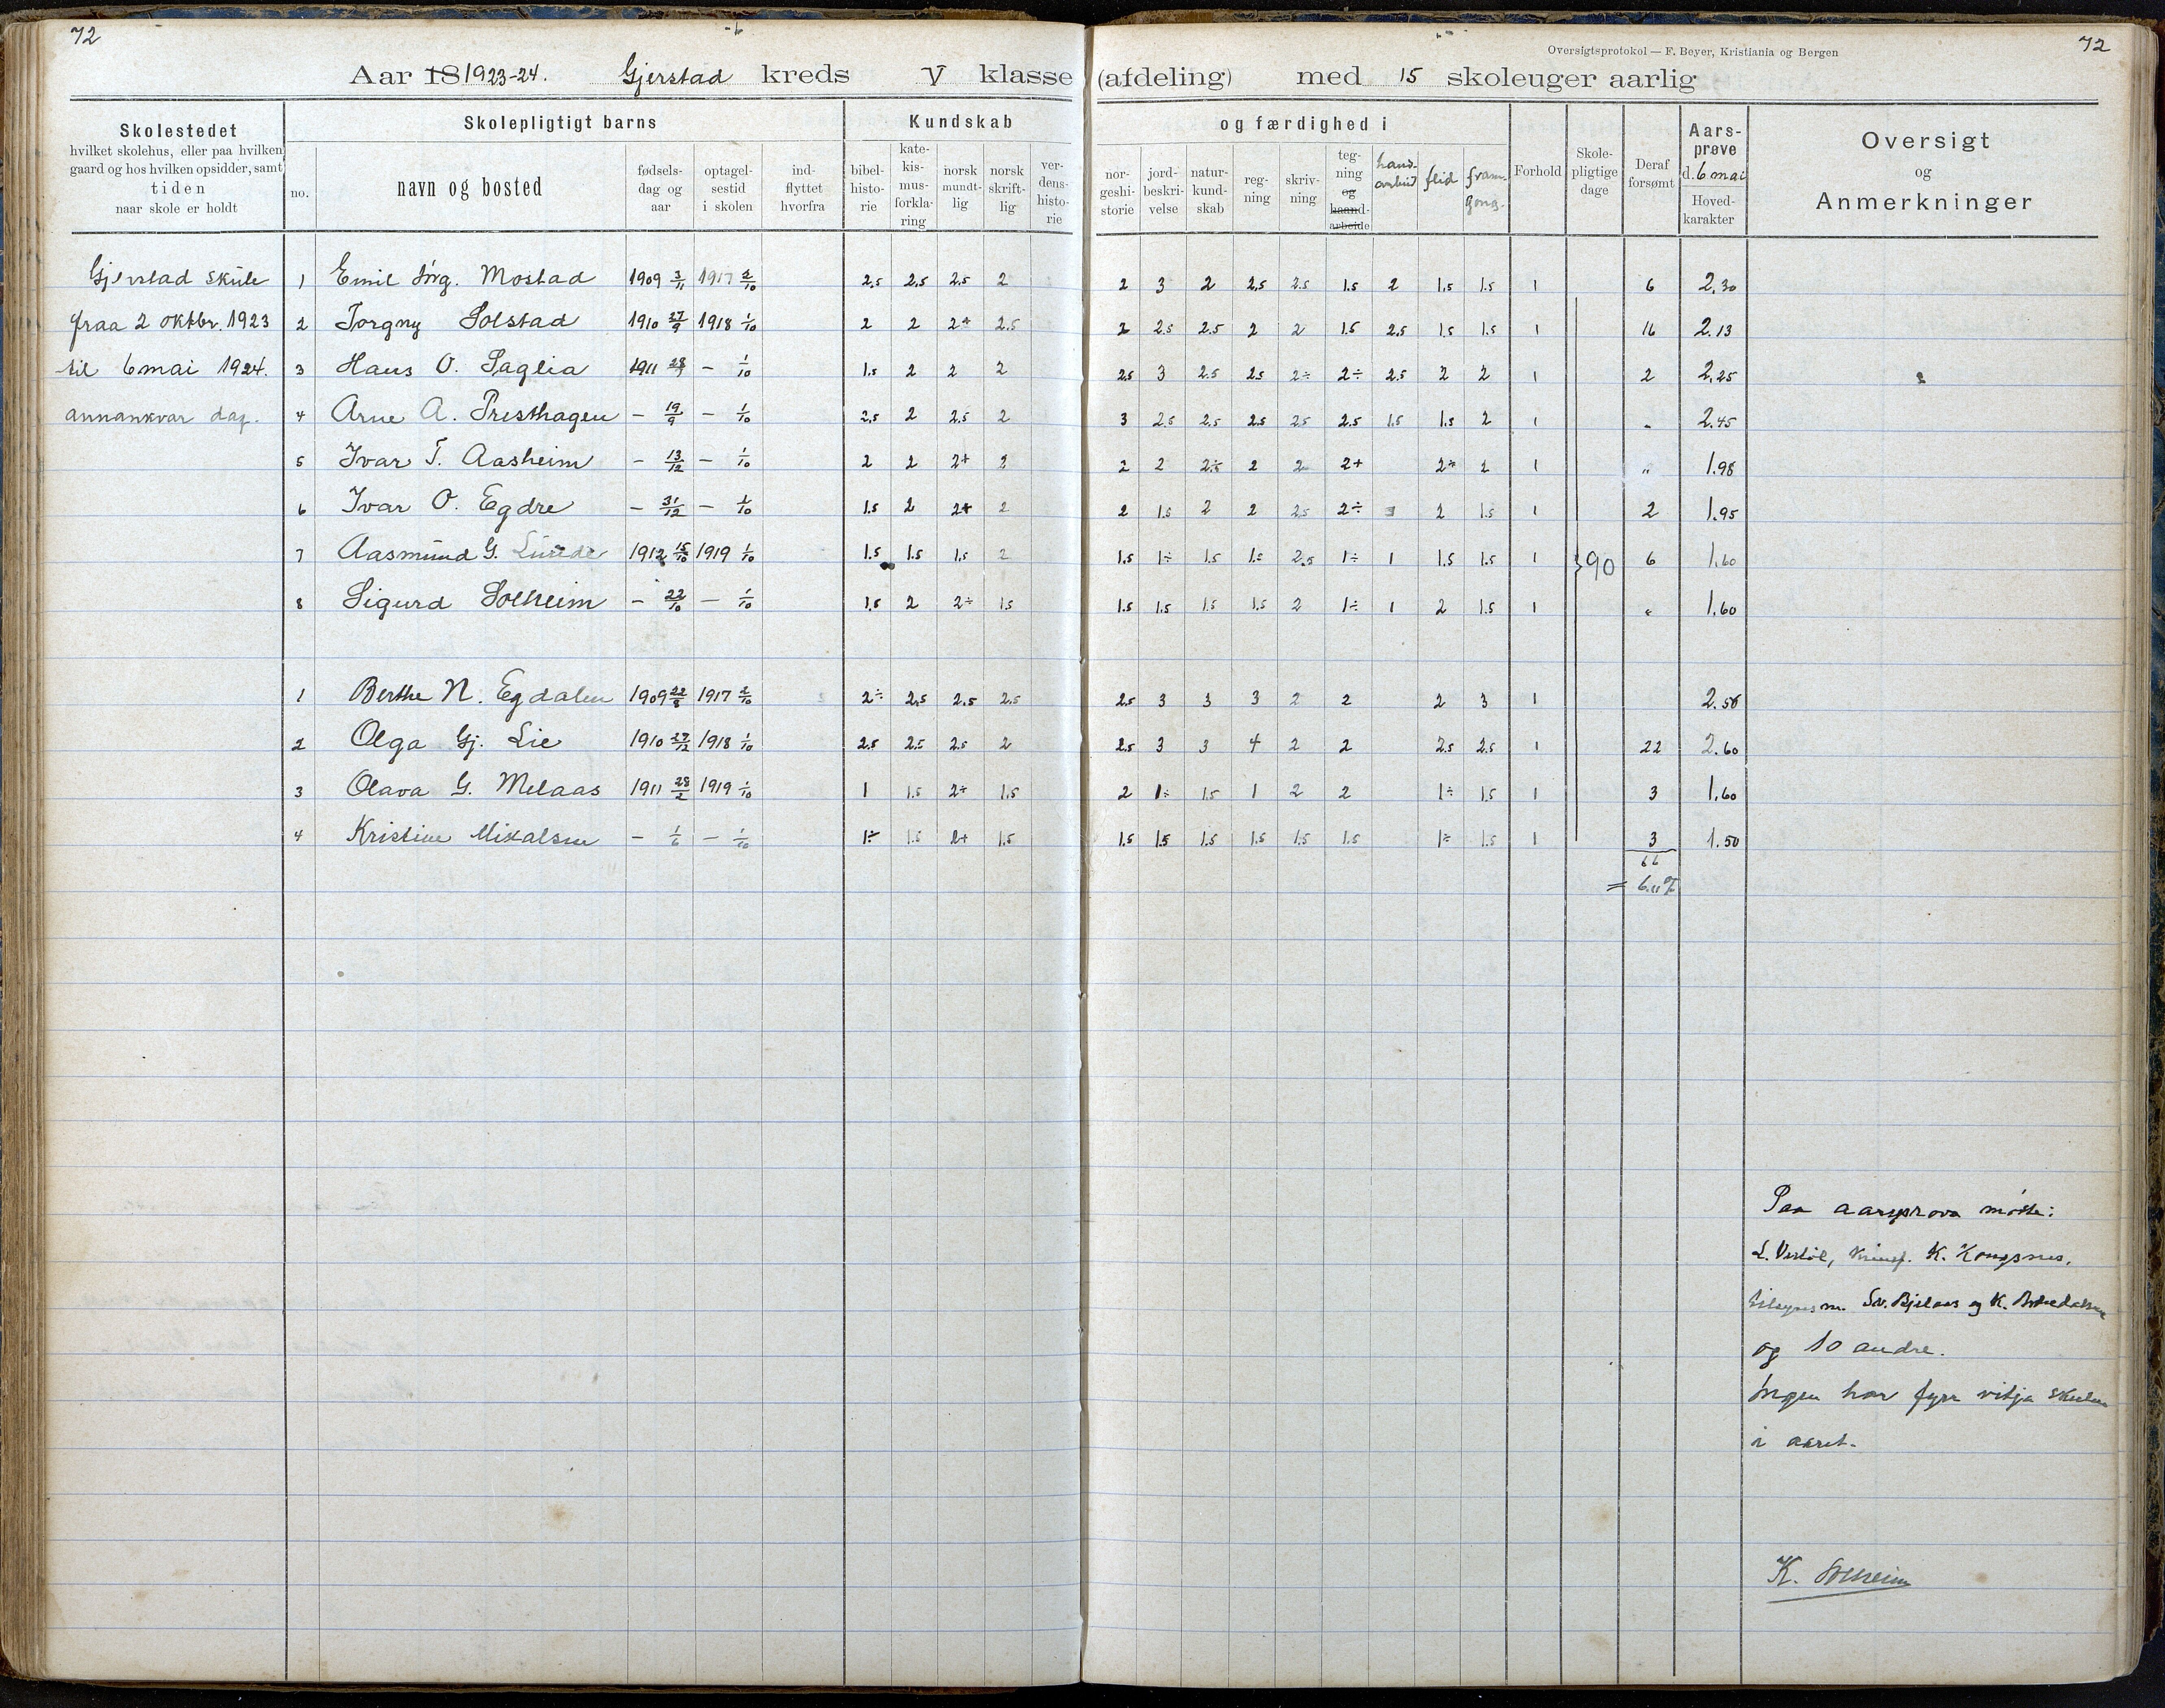 72
72
Oversigtsprotokol — F. Beyer, Kristiania og Bergen
Aar 18 1923-24. Gjerstad kreds V klasse (afdeling) med 15 skoleuger aarlig
Skolestedet
hvilket skolehus, eller paa hvilken
gaard og hos hvilken opsidder, samt
tiden
naar skole er holdt
Skolepligtigt barns
no.
navn og bosted
fødsels-
dag og
aar
optagel-
sestid
i skolen
ind-
flyttet
hvorfra
Kundskab
bibel-
histo-
rie
kate-
kis-
mus-
forkla-
ring
norsk
mundt-
lig
norsk
skrift-
lig
ver-
dens-
histo-
rie
og færdighed i
nor-
geshi-
storie
jord-
beskri-
velse
natur-
kund-
skab
reg-
ning
skriv-
ning
teg-
ning
og
haand-
arbeide
hand-
arbeid
flid
fram-
gong.
Forhold
Skole-
pligtige
dage
Deraf
forsømt
Aars-
prøve
d. 6 mai
Hoved-
karakter
Oversigt
og
Anmerkninger
Gjerstad skule 1 Emil Jørg. Mostad 1909 3/11 1917 2/10 2.5 2.5 2.5 2 2 3 2 2.5 2.5 1.5 2 1.5 1.5 1 6 2.30
fraa 2 oktbr. 1923 2 Torgny Solstad 1910 27/9 1918 1/10 2 2 2+ 2.5 2 2.5 2.5 2 2 1.5 2.5 1.5 1.5 1 16 2.13
til 6 mai 1924. 3 Hans O. Saglia 1911 – 1/10 1.5 2 2 2 2.5 3 2.5 2.5 2÷ 2÷ 2.5 2 2 1 2 2.25
annankvar dag. 4 Arne A. Presthagen – 19/9 – 1/10 2.5 2 2.5 2 3 2.5 2.5 2.5 2.5 2.5 1.5 1.5 2 1 " 2.45
5 Ivar T. Aasheim – 13/12 – 1/10 2 2 2+ 2 2 2 2÷ 2 2 2+ 2+ 2 1 " 1.98
6 Ivar O. Egdre – 31/12 – 1/10 1.5 2 2+ 2 2 1.5 2 2 2.5 2÷ 2 1.5 1 2 1.95
7 Aasmund G. Lunde 1912 15/10 1919 1/10 1.5 1.5 1.5 2 1.5 1÷ 1.5 1.5 2.5 1÷ 1 1.5 1.5 1 }90 6 1.60
8 Sigurd Solheim – 22/10 – 1/10 1.5 2 2÷ 1.5 1.5 1.5 1.5 1.5 2 1÷ 1 2 1.5 1 " 1.60
1 Berthe N. Egdalen 1909 22/8 1917 2/10 2÷ 2.5 2.5 2.5 2.5 3 3 3 2 2 2 3 1 2.56
2 Olga Gj. Lie 1910 27/12 1918 1/10 2.5 2.5 2.5 2 2.5 3 3 4 2 2 2.5 2.5 1 22 2.60
3 Olava G. Melaas 1911 28/2 1919 1/10 1 1.5 2÷ 1.5 2 1÷ 1.5 1 2 2 1÷ 1.5 1 3 1.60
4 Kristine Mikalsen – 1/6 – 1/10 1÷ 1.5 2+ 1.5 1.5 1.5 1.5 1.5 1.5 1.5 1÷ 1.5 1 3 1.50
66
= 6.11%
Paa aarsprøva møtte:
L. Vestøl, K. Kongsnes,
tilsynsm. Sv. Bjelaas og K.
og 10 andre.
Ingen har fyrr vitja skulen
i aaret.
K. Solheim